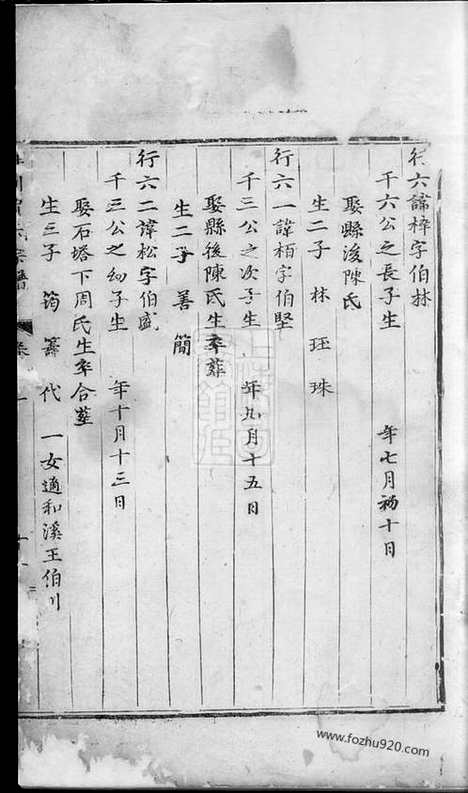 行六諱梓字伯林
千六公之長子生 年七月初十日
娶縣後陳氏
生二子 林 珏 珠
行六一諱栢字伯堅
千三公之次子生 年九月十五日
娶縣後陳氏生卒葬
生二子 善 簡
行六二諱松字伯盛
千三公之幼子生 年十月十三日
娶石塔下周氏生卒合塟
生三子 筠 籌 代 一女適和溪王伯川
www.fozhu920.com